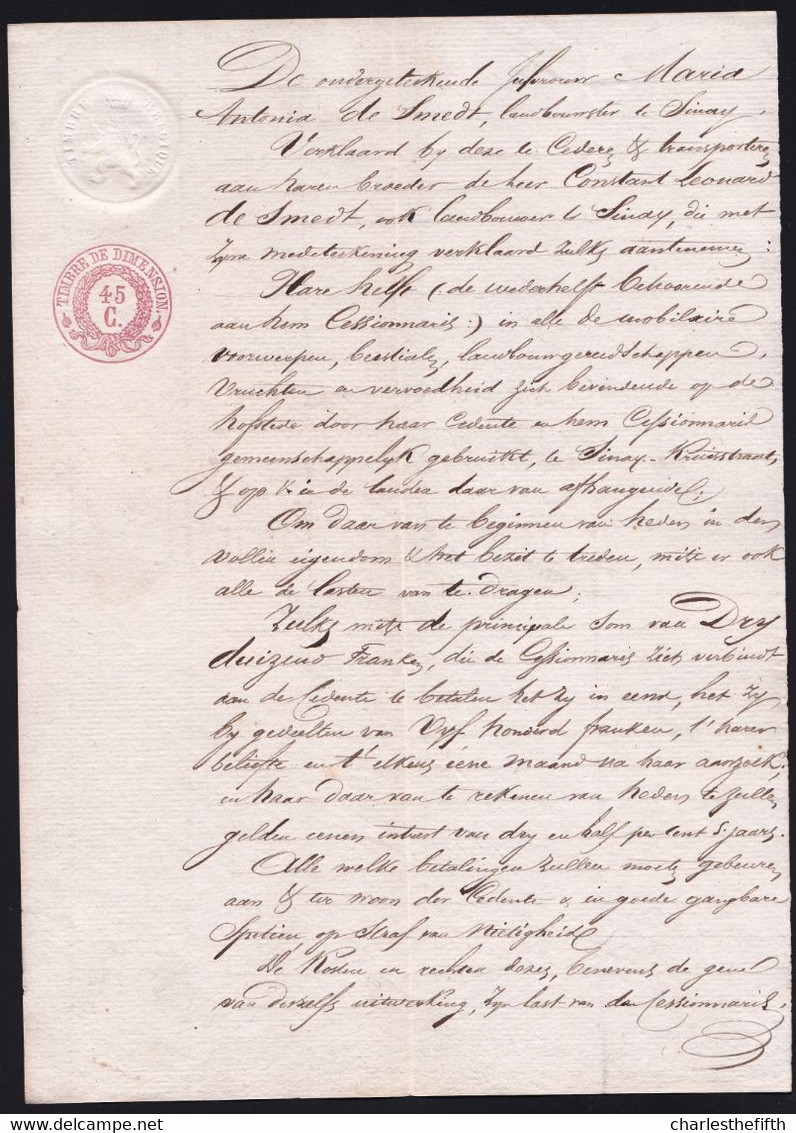 De ondergeteekende Jufvrouw Maria
Antonia de Smedt, landbouwster te Sinay,
Verklaard by deze te Cederen & transporteren
aan haren broeder de heer Constant Leonard
de Smedt, ook landbouwer te Sinay, die met
zyne medeteekening verklaard zulks aantenemen:
Hare helft (: de wederhelft behoorende
aan hem Cessionnaris:) in alle de mobilaire
voorwerpen, beestialen, landbouwgereedschappen,
vruchten en vervoedheid zich bevindende op de
hofstede door haar Cedente en hem Cessionnaris
gemeenschappelyk gebruikt, te Sinay-Kruisstraat,
& op & in de landen daar van afhangende;
Om daar van te beginnen van heden in den
vollen eigendom & het bezit te treden, mits er ook
alle de lasten van te dragen;
Zulks mits de principale Som van Dry
duizend Franken, die de Cessionnaris zich verbindt
aan de Cedente te betalen het zy in eens, het zy
by gedeelten van Vyf honderd franken, t' harer
beliefte en t' elkens eene maand na haar aanzoek,
en haar daar van te rekenen van heden te zullen
gelden eenen intrest van dry en half per cent 's jaars.
Alle welke betalingen zullen moeten gebeuren
aan & ter woon der Cedente & in goede gangbare
Spetien op Straf van Nietigheid
De Kosten en rechten dezes, benevens de gene
van derzelfs uitwerking, zyn last van den Cessionnaris.
TIMBRE BELGIQUE
TIMBRE DE DIMENSION.
45
C.
charlesthefifth
delcampe.net